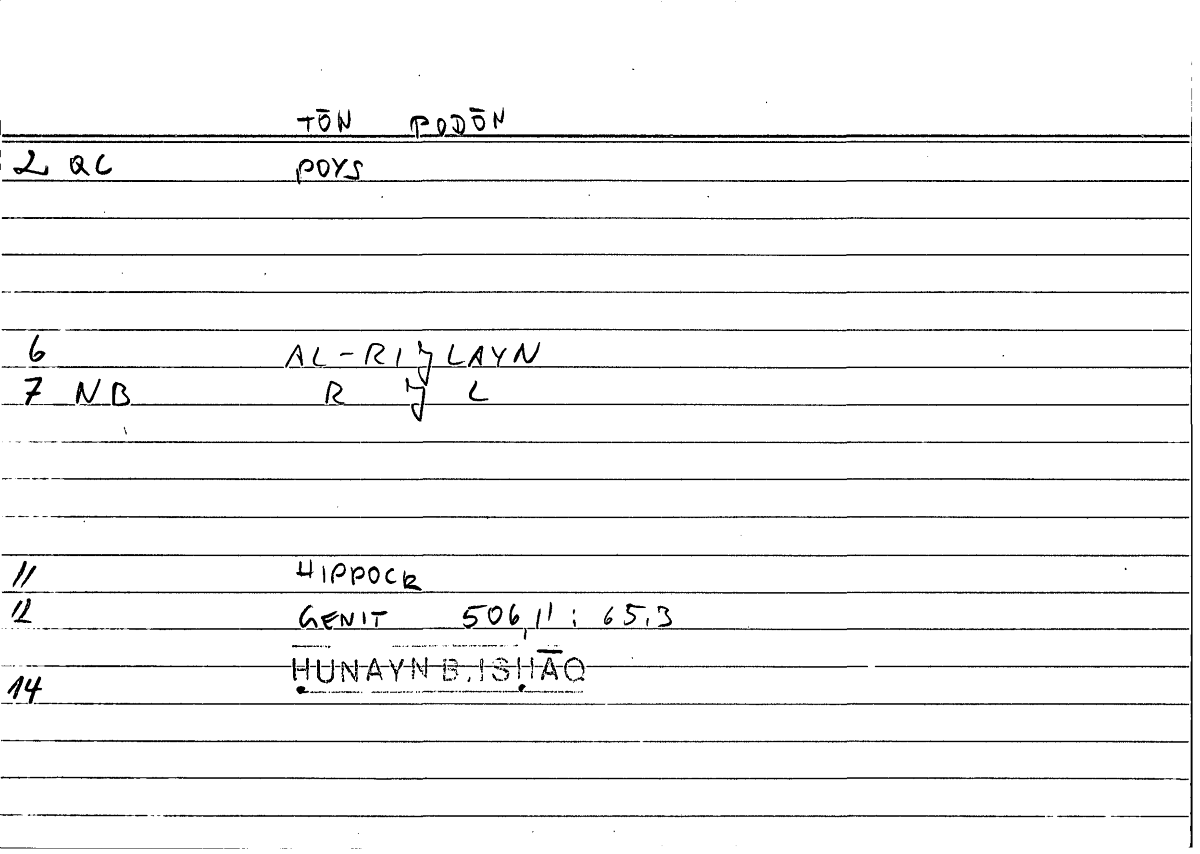 TŌN PODŌN
2 QC POYS
6 AL-RIJLAYN
7 NB R J L
11 HIPPOCR
12 GENIT 506,11 : 65,3
ḤUNAYN B. ISḤĀQ
14